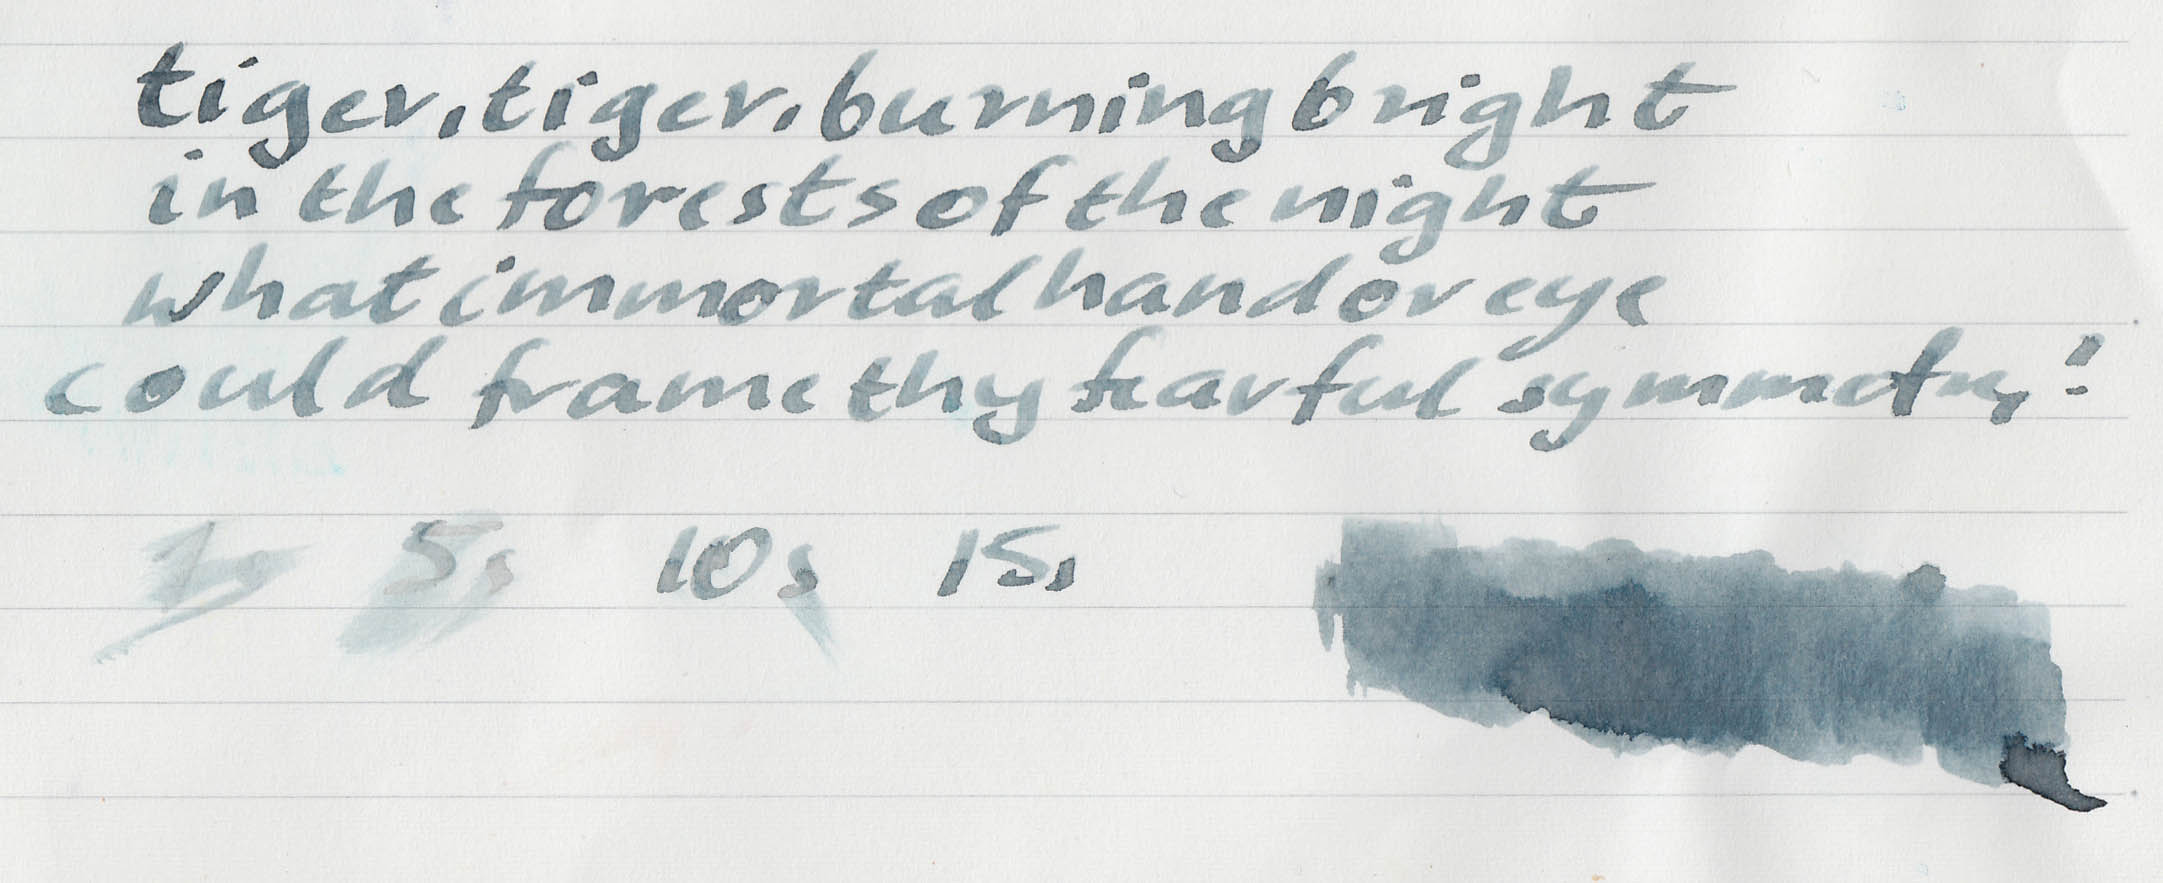 tiger, tiger, burning bright
in the forests of the night
what immortal hand or eye
could frame thy fearful symmetry?
1s 5s 10s 15s